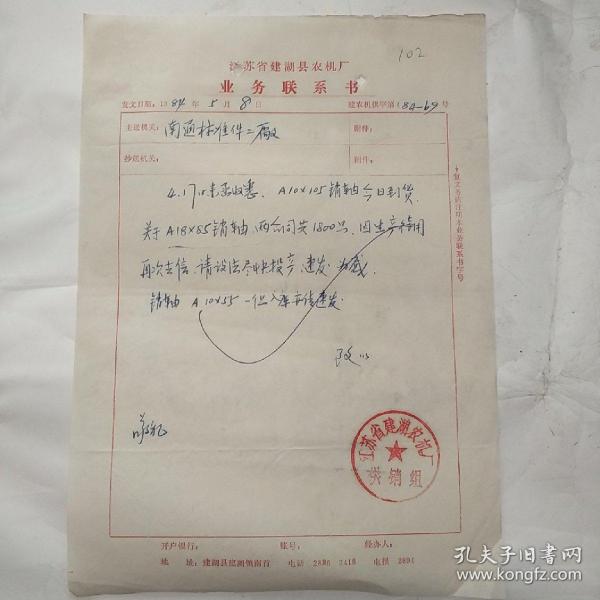 102
江苏省建湖县农机厂
业务联系书
发文日期：1984年5月8日 建农机供字第(84-69号
主送机关：南通标准件二廠 附件：
抄送机关： 附件：
4.17日来函收悉。A10×105销轴今日到货.
关于A18×85销轴，两合同共1800只，因生产待用
再次去信，请设法尽快投产，速发为感.
销轴 A10×55一但入库亦请速发.
敬礼
江苏省建湖农机厂
供销组
开户银行： 账号： 经办人：
地 址：建湖县建湖镇南首 电话 2886 2418 电报 2894
复文务请注明本业务联系书字号
孔夫子旧书网
www.kongfz.com